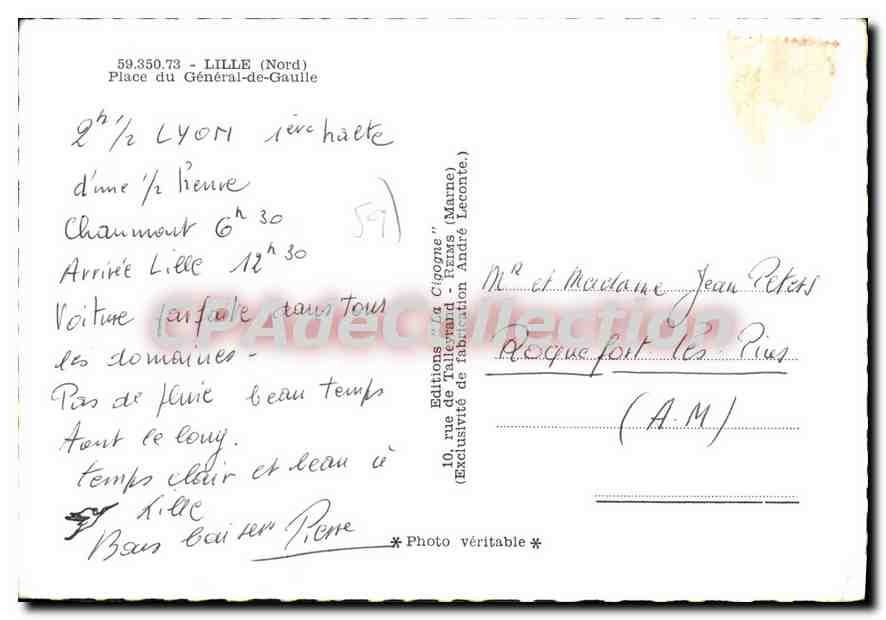 59.350.73 - LILLE (Nord)
Place du Général-de-Gaulle
2h 1/2 LYON 1ère halte
d'une 1/2 heure
Chaumont 6h 30
Arrivée Lille 12h 30
Voiture parfaite dans tous
les domaines -
Pas de pluie beau temps
tout le long.
temps clair et beau à
Lille
Bons baisers Pierre
59)
Editions "La Cigogne"
10, rue de Talleyrand - REIMS (Marne)
(Exclusivité de fabrication André Leconte.)
Mr et Madame Jean Peters
Roquefort-les-Pins
(A.M)
* Photo véritable *
CPAdeCollection.com